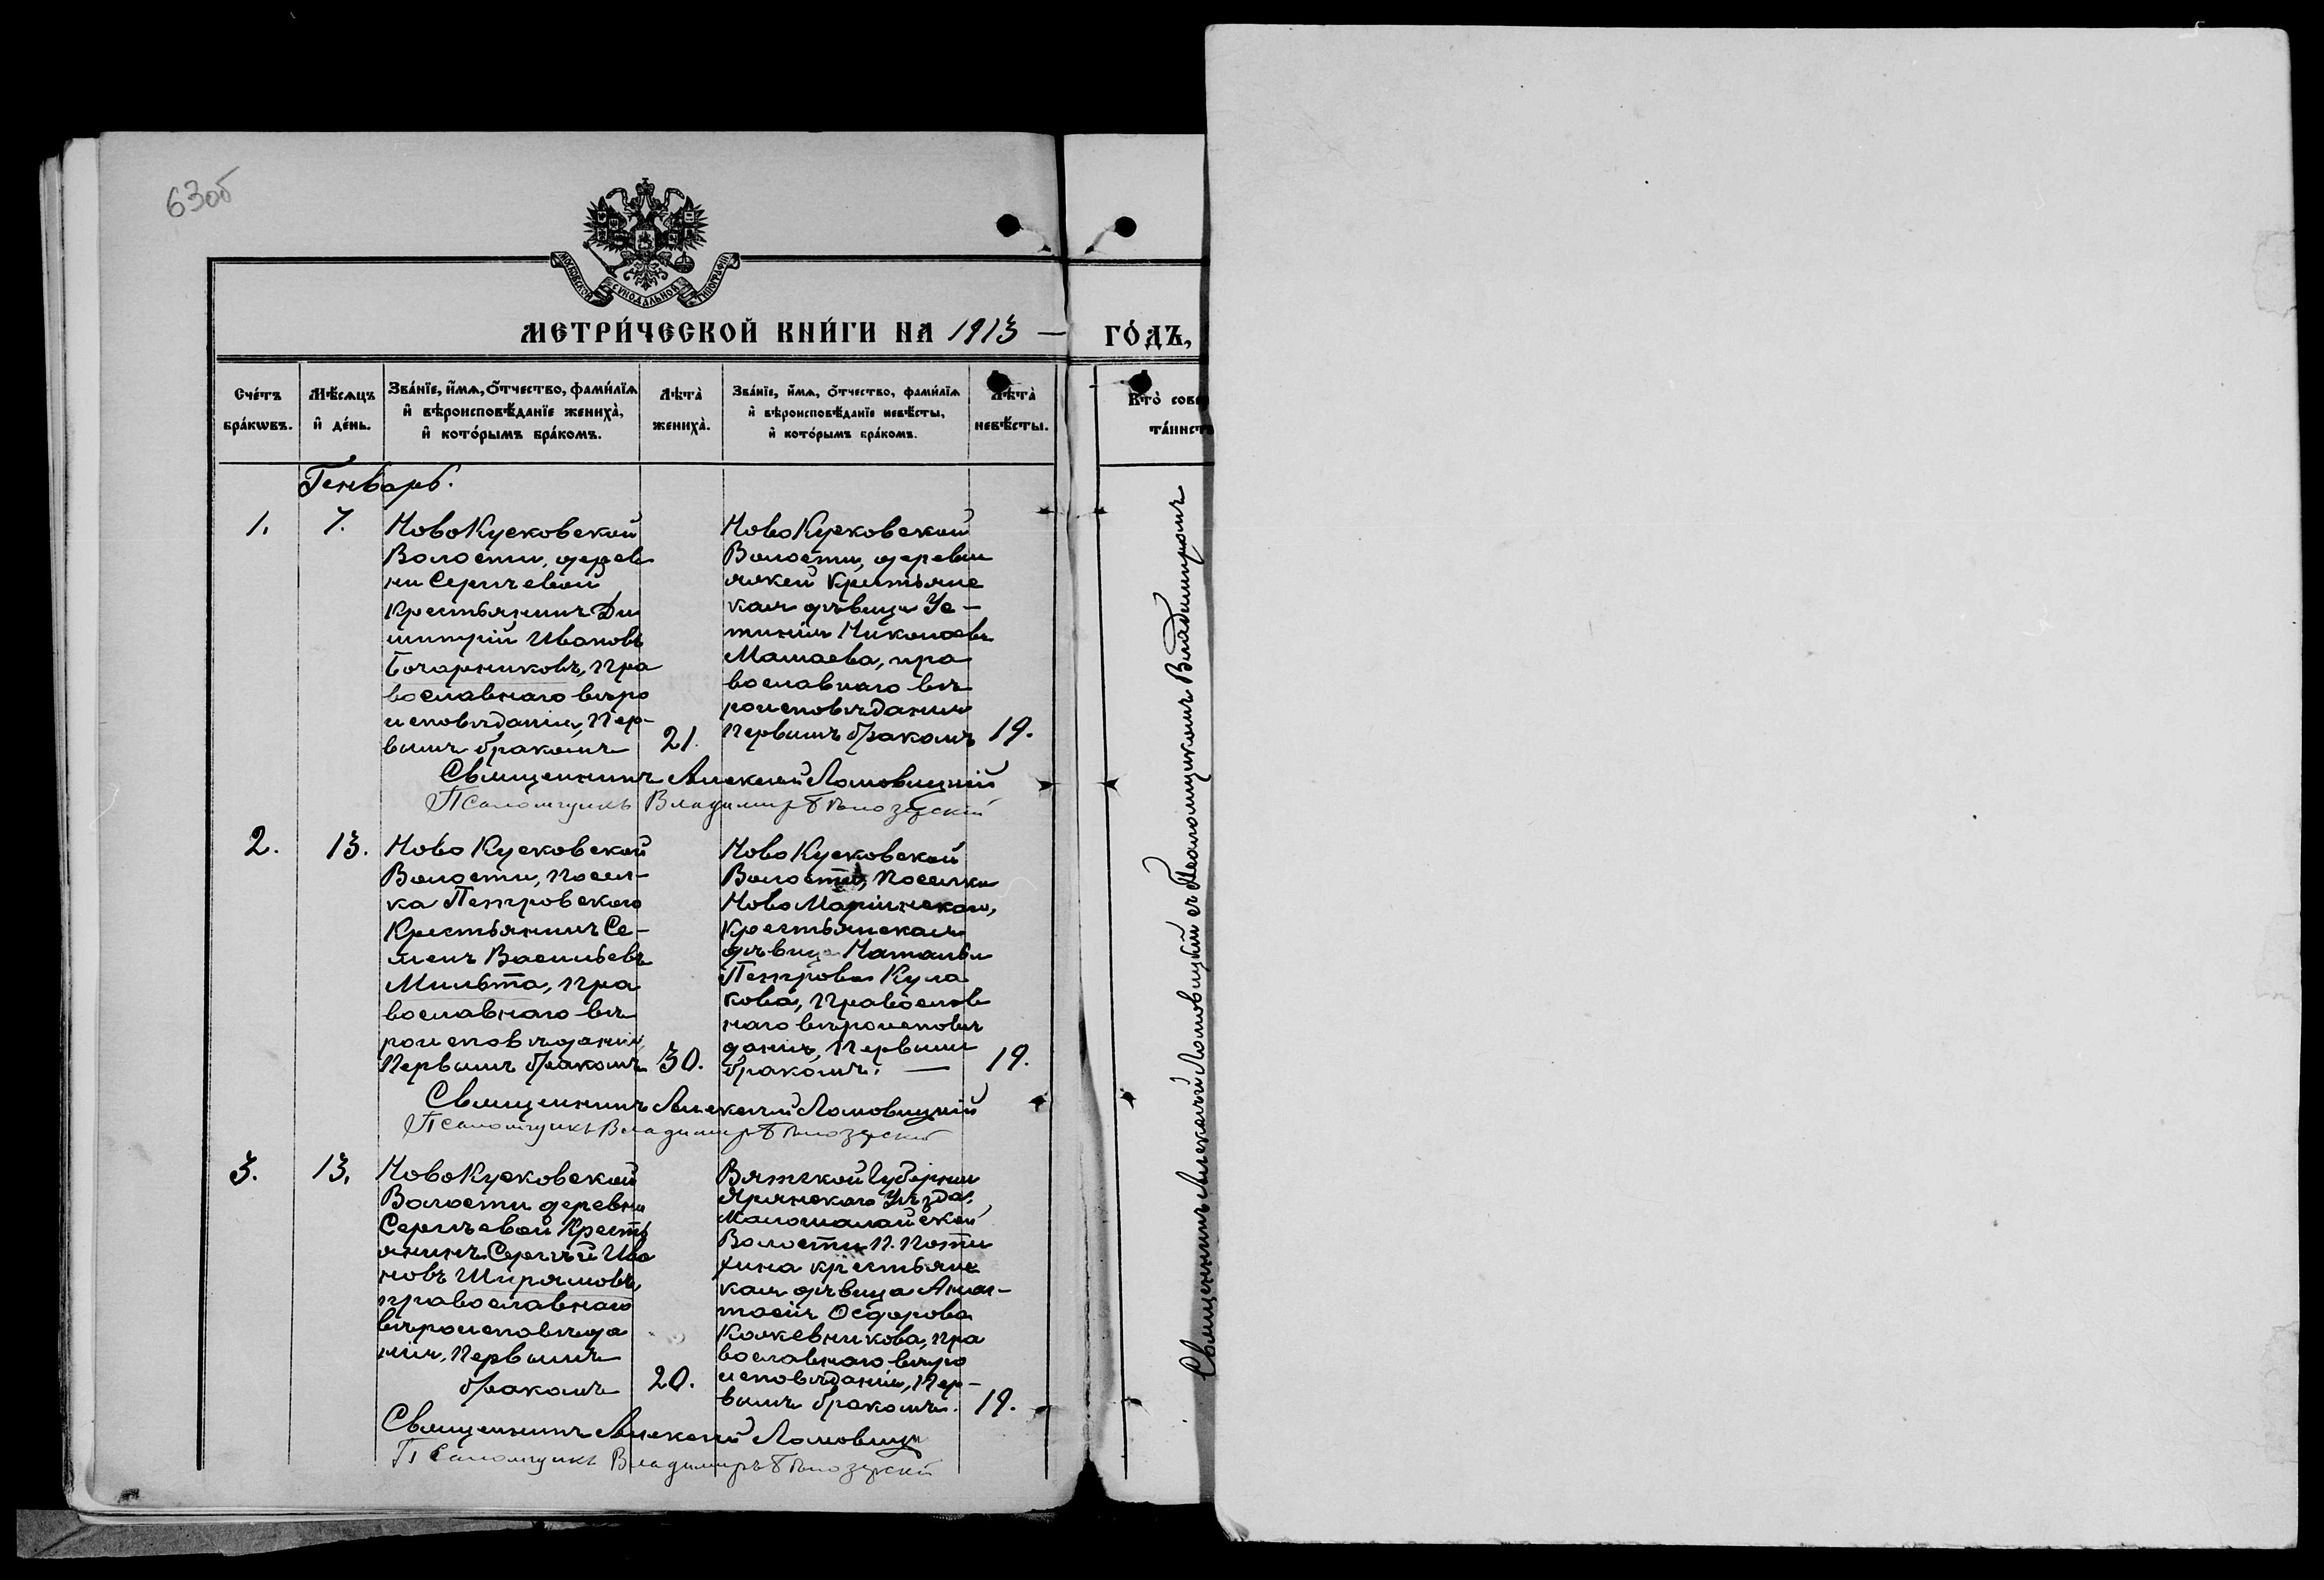 63об
МОСКОВСКОЙ СѴНОДАЛЬНОЙ ТИПОГРАФІИ
МЕТРИ́ЧЕСКОЙ КНИ́ГИ НА 1913 — ГО́ДЪ,
Сче́тъ бра́кѡвъ.
Мѣ́сѧцъ и҆ де́нь.
Зва́нїе, и҆́мѧ, ѻ҆́тчество, фами́лїѧ
и҆ вѣроисповѣ́данїе женихà,
и҆ кото́рымъ бра́комъ.
Лѣ́та женихà.
Зва́нїе, и҆́мѧ, ѻ҆́тчество, фами́лїѧ
и҆ вѣроисповѣ́данїе невѣ́сты,
и҆ кото́рымъ бра́комъ.
Лѣ́та невѣ́сты.
Кто̀ сове
та́инст
Генварь.
1.
7.
Ново Кусковской
Волости, дерев
ни Сергѣевой
крестьянинъ Ди
митрій Ивановъ
Бочарниковъ, пра
вославнаго вѣро
исповѣданія, пер-
вымъ бракомъ
21.
Ново Кусковской
Волости, деревни
крестьянс
кая дѣвица Ус-
тинія Николаева
Мамаева, пра
вославнаго вѣ
роисповѣданія
первымъ бракомъ
19.
Священникъ Алексій Ломовицкій
Псаломщикъ Владимиръ Бѣлозерскій
2.
13.
Ново Кусковской
Волости, посел-
ка Петровскаго
Крестьянинъ Се-
менъ Васильевъ
Мильта, пра
вославнаго вѣ
роисповѣданія,
Первымъ бракомъ
30.
Ново Кусковской
Волости, поселка
Ново Маріинскаго,
крестьянская
дѣвица Наталья
Петрова Кула
кова, православ
наго вѣроисповѣ
данія, первымъ
бракомъ. —
19.
Священникъ Алексій Ломовицкій
Псаломщикъ Владимиръ Бѣлозерскій
3.
13.
Ново Кусковской
Волости деревни
Сергѣевой Кресть
янинъ Сергѣй Ива
новъ Ширямовъ,
православнаго
вѣроисповѣда
нія, первымъ
бракомъ
20.
Вятской Губерніи
Яранскаго Уѣзда,
Волости п. Поти
хина крестьянс
кая дѣвица Анас-
тасія Ѳедорова
Кожевникова, пра
вославнаго вѣро
исповѣданія, пер-
вымъ бракомъ.
19.
Священникъ Алексій Ломовицк
Псаломщикъ Владимиръ Бѣлозерскій
Священникъ Алексій Ломовицкій съ Псаломщикомъ Владимиромъ